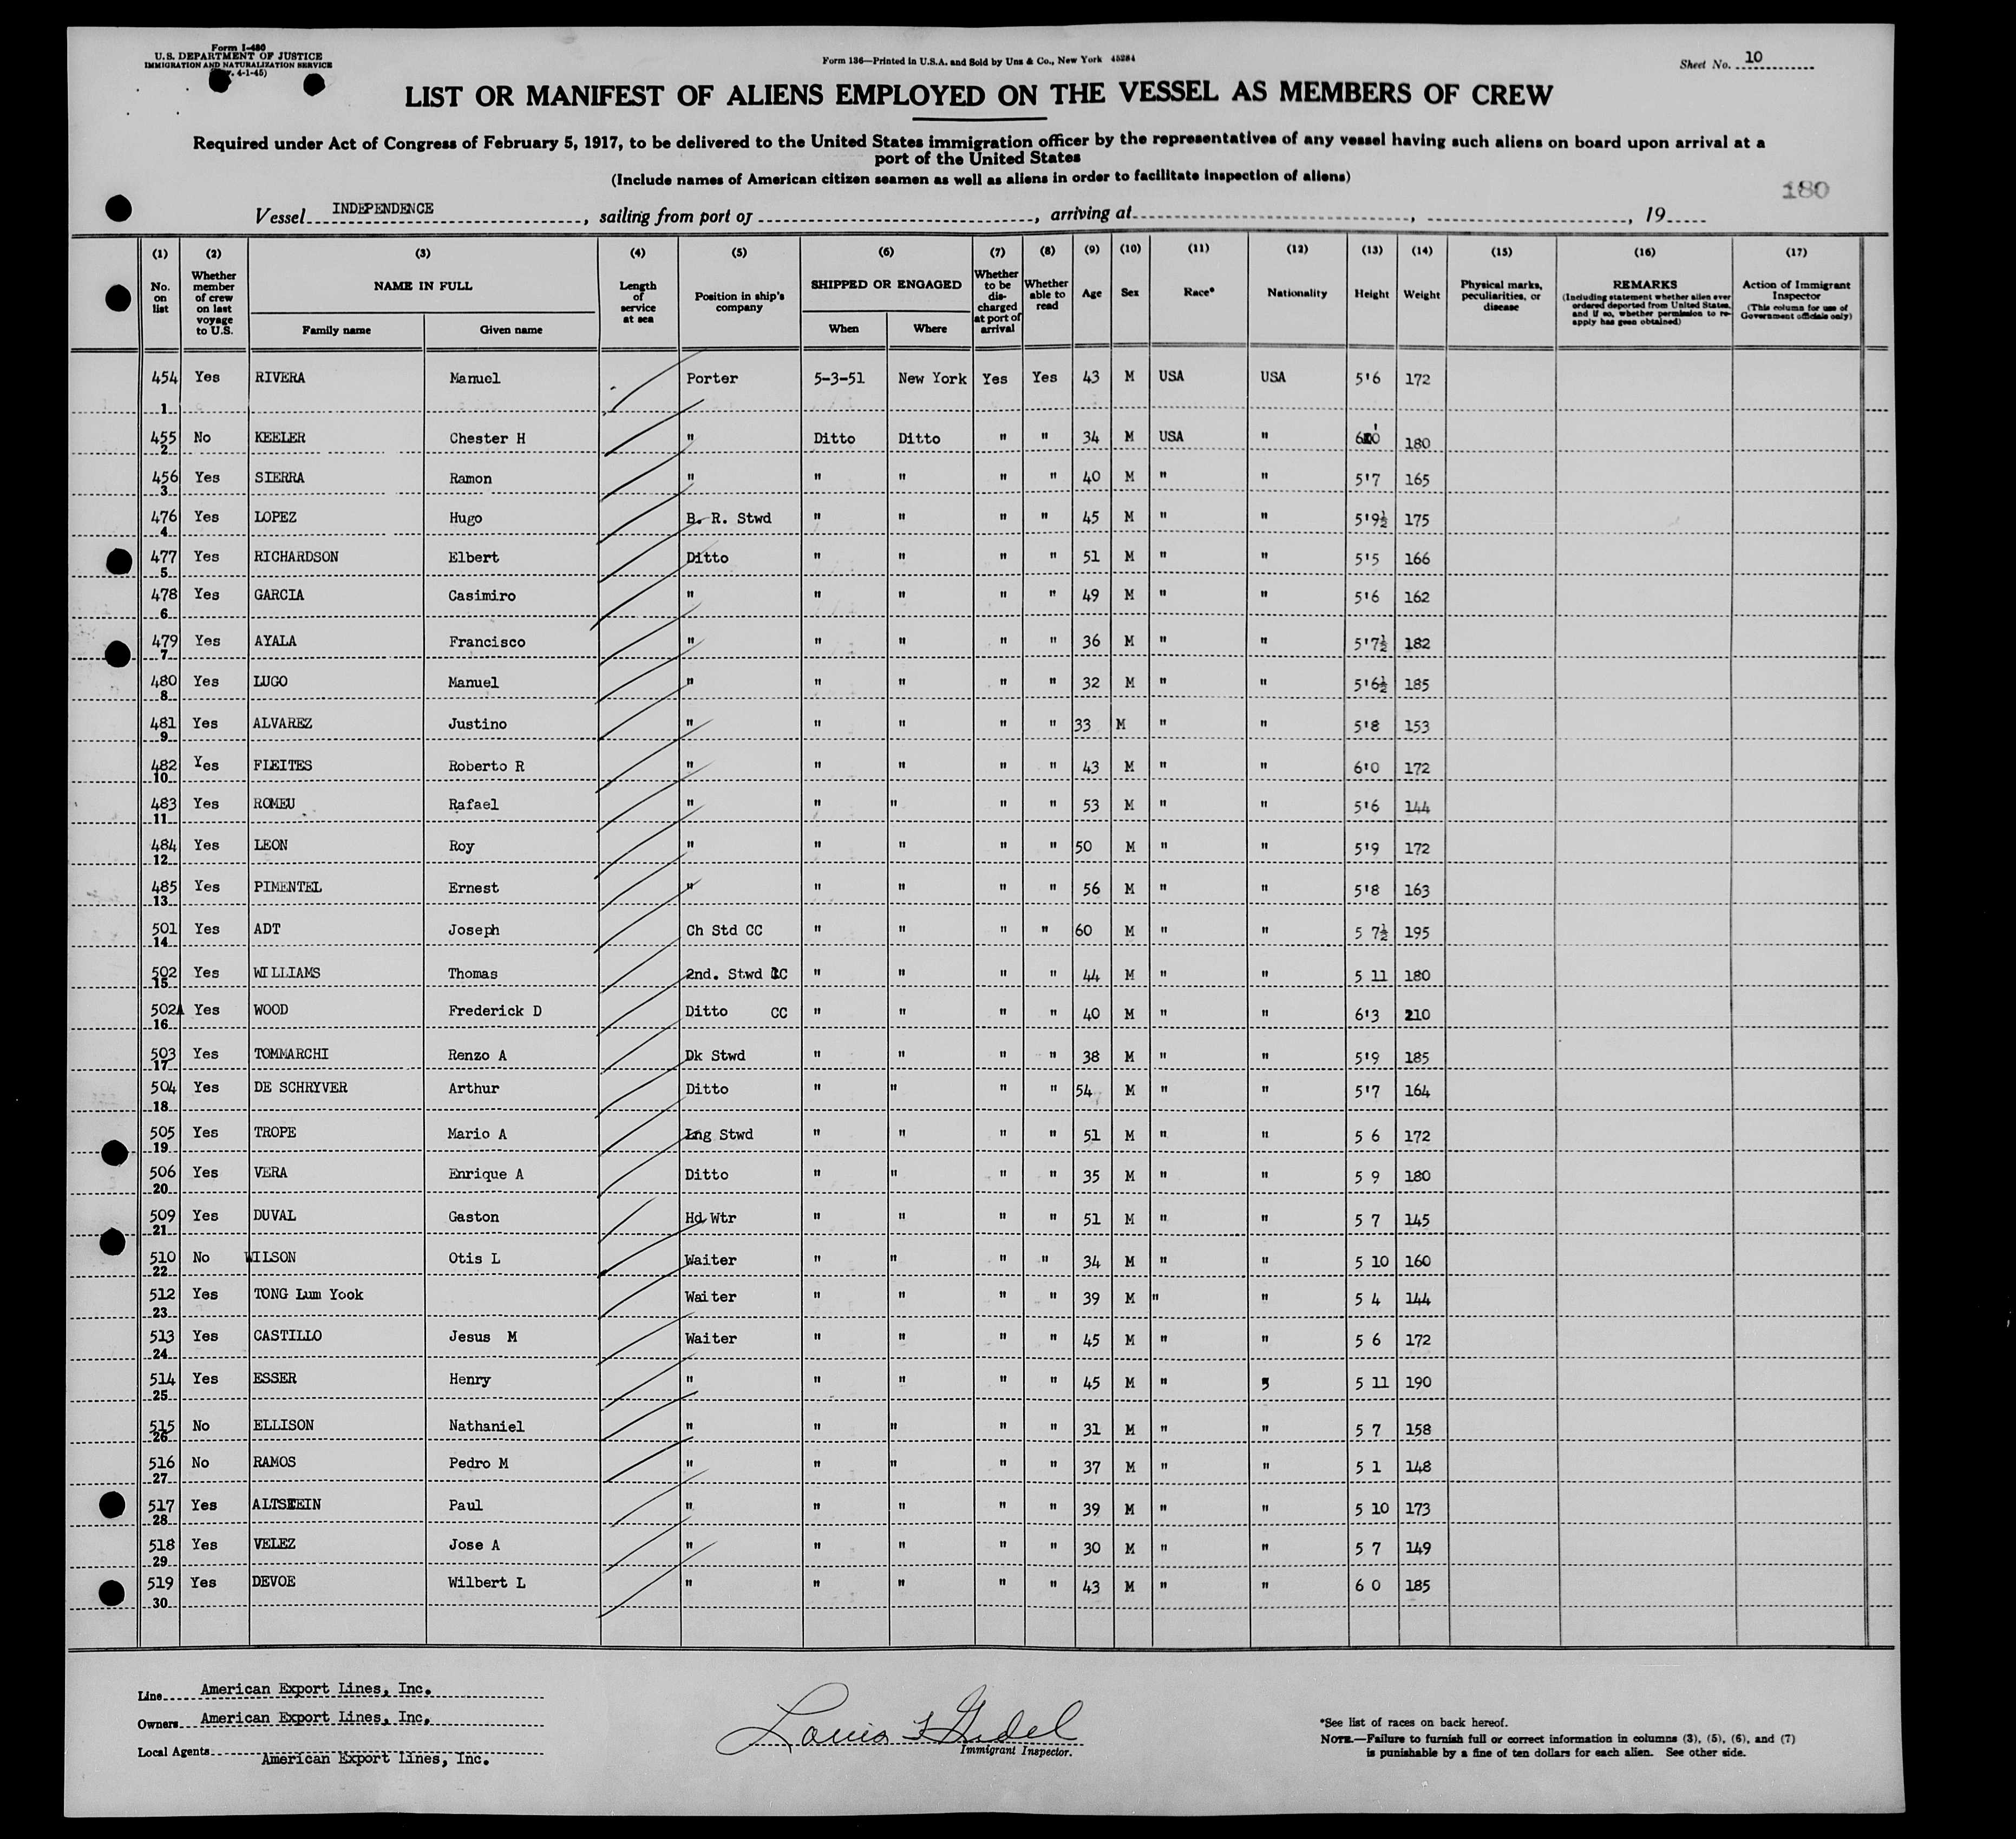 Form I-480
U.S. DEPARTMENT OF JUSTICE
IMMIGRATION AND NATURALIZATION SERVICE
4-1-45)
Form 136—Printed in U.S.A. and Sold by Unz & Co., New York 45284
Sheet No. 10
LIST OR MANIFEST OF ALIENS EMPLOYED ON THE VESSEL AS MEMBERS OF CREW
Required under Act of Congress of February 5, 1917, to be delivered to the United States immigration officer by the representatives of any vessel having such aliens on board upon arrival at a
port of the United States
(Include names of American citizen seamen as well as aliens in order to facilitate inspection of aliens)
180
Vessel INDEPENDENCE, sailing from port of , arriving at , , 19
(1) (2) (3) (4) (5) (6) (7) (8) (9) (10) (11) (12) (13) (14) (15) (16) (17)
No. on list
Whether member of crew on last voyage to U.S.
NAME IN FULL
Family name Given name
Length of service at sea
Position in ship's company
SHIPPED OR ENGAGED
When Where
Whether to be discharged at port of arrival
Whether able to read
Age Sex Race* Nationality Height Weight
Physical marks, peculiarities, or disease
REMARKS
(Including statement whether alien ever ordered deported from United States, and if so, whether permission to re-apply has geen obtained)
Action of Immigrant Inspector
(This column for use of Government officials only)
454 Yes RIVERA Manuel Porter 5-3-51 New York Yes Yes 43 M USA USA 5'6 172
1
455 No KEELER Chester H " Ditto Ditto " " 34 M USA " 180
2
456 Yes SIERRA Ramon " " " " " 40 M " " 5'7 165
3
476 Yes LOPEZ Hugo B. R. Stwd " " " " 45 M " " 5'9½ 175
4
477 Yes RICHARDSON Elbert Ditto " " " " 51 M " " 5'5 166
5
478 Yes GARCIA Casimiro " " " " " 49 M " " 5'6 162
6
479 Yes AYALA Francisco " " " " " 36 M " " 5'7½ 182
7
480 Yes LUGO Manuel " " " " " 32 M " " 5'6½ 185
8
481 Yes ALVAREZ Justino " " " " " 33 M " " 5'8 153
9
482 Yes FLEITES Roberto R " " " " " 43 M " " 6'0 172
10
483 Yes ROMEU Rafael " " " " " 53 M " " 5'6 144
11
484 Yes LEON Roy " " " " " 50 M " " 5'9 172
12
485 Yes PIMENTEL Ernest " " " " " 56 M " " 5'8 163
13
501 Yes ADT Joseph Ch Std CC " " " " 60 M " " 5 7½ 195
14
502 Yes WILLIAMS Thomas 2nd. Stwd CC " " " " 44 M " " 5 11 180
15
502A Yes WOOD Frederick D Ditto CC " " " " 40 M " " 6'3 210
16
503 Yes TOMMARCHI Renzo A Dk Stwd " " " " 38 M " " 5'9 185
17
504 Yes DE SCHRYVER Arthur Ditto " " " " 54 M " " 5'7 164
18
505 Yes TROPE Mario A Lng Stwd " " " " 51 M " " 5 6 172
19
506 Yes VERA Enrique A Ditto " " " " 35 M " " 5 9 180
20
509 Yes DUVAL Gaston Hd Wtr " " " " 51 M " " 5 7 145
21
510 No WILSON Otis L Waiter " " " " 34 M " " 5 10 160
22
512 Yes TONG Lum Yook Waiter " " " " 39 M " " 5 4 144
23
513 Yes CASTILLO Jesus M Waiter " " " " 45 M " " 5 6 172
24
514 Yes ESSER Henry " " " " " 45 M " 5 11 190
25
515 No ELLISON Nathaniel " " " " " 31 M " " 5 7 158
26
516 No RAMOS Pedro M " " " " " 37 M " " 5 1 148
27
517 Yes ALTSTEIN Paul " " " " " 39 M " " 5 10 173
28
518 Yes VELEZ Jose A " " " " " 30 M " " 5 7 149
29
519 Yes DEVOE Wilbert L " " " " " 43 M " " 6 0 185
30
Line American Export Lines, Inc.
Owners American Export Lines, Inc.
Local Agents American Export Lines, Inc.
Louis
Immigrant Inspector.
*See list of races on back hereof.
NOTE.—Failure to furnish full or correct information in columns (3), (5), (6), and (7)
is punishable by a fine of ten dollars for each alien. See other side.